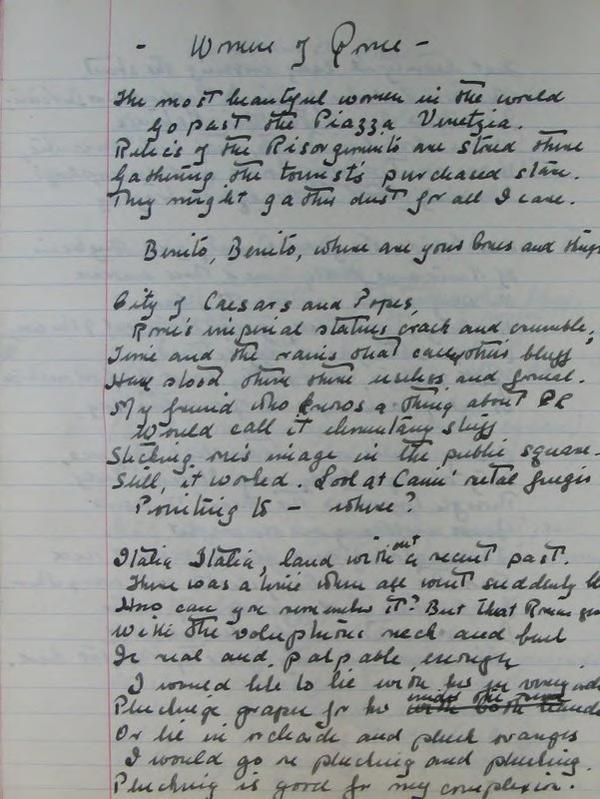 - Women of Rome -
The most beautiful women in the world
Go past the Piazza Venetzia.
Relics of the Risorgimento are stored there
Gathering the tourist's purchased stare.
They might gather dust for all I care.
Benito, Benito, where are your bones and
City of Caesars and Popes,
Rome's imperial statues crack and crumble,
Time and the rains that call others bluff
Have stood there useless and
My friend who knows a thing about PR
Would call it elementary stuff
Sticking one's image in the public square.
Still, it worked. Look at metal
Pointing to - where?
Italia Italia, land without a recent past.
There was a time when all went suddenly
How can you remember it? But that Roman
With the voluptuous neck and bust
Is real and palpable enough
I would like to lie with her in vineyards
Plucking grapes for her under the
Or lie in orchards and pluck oranges
I would go on plucking and plucking.
Plucking is good for my complexion.